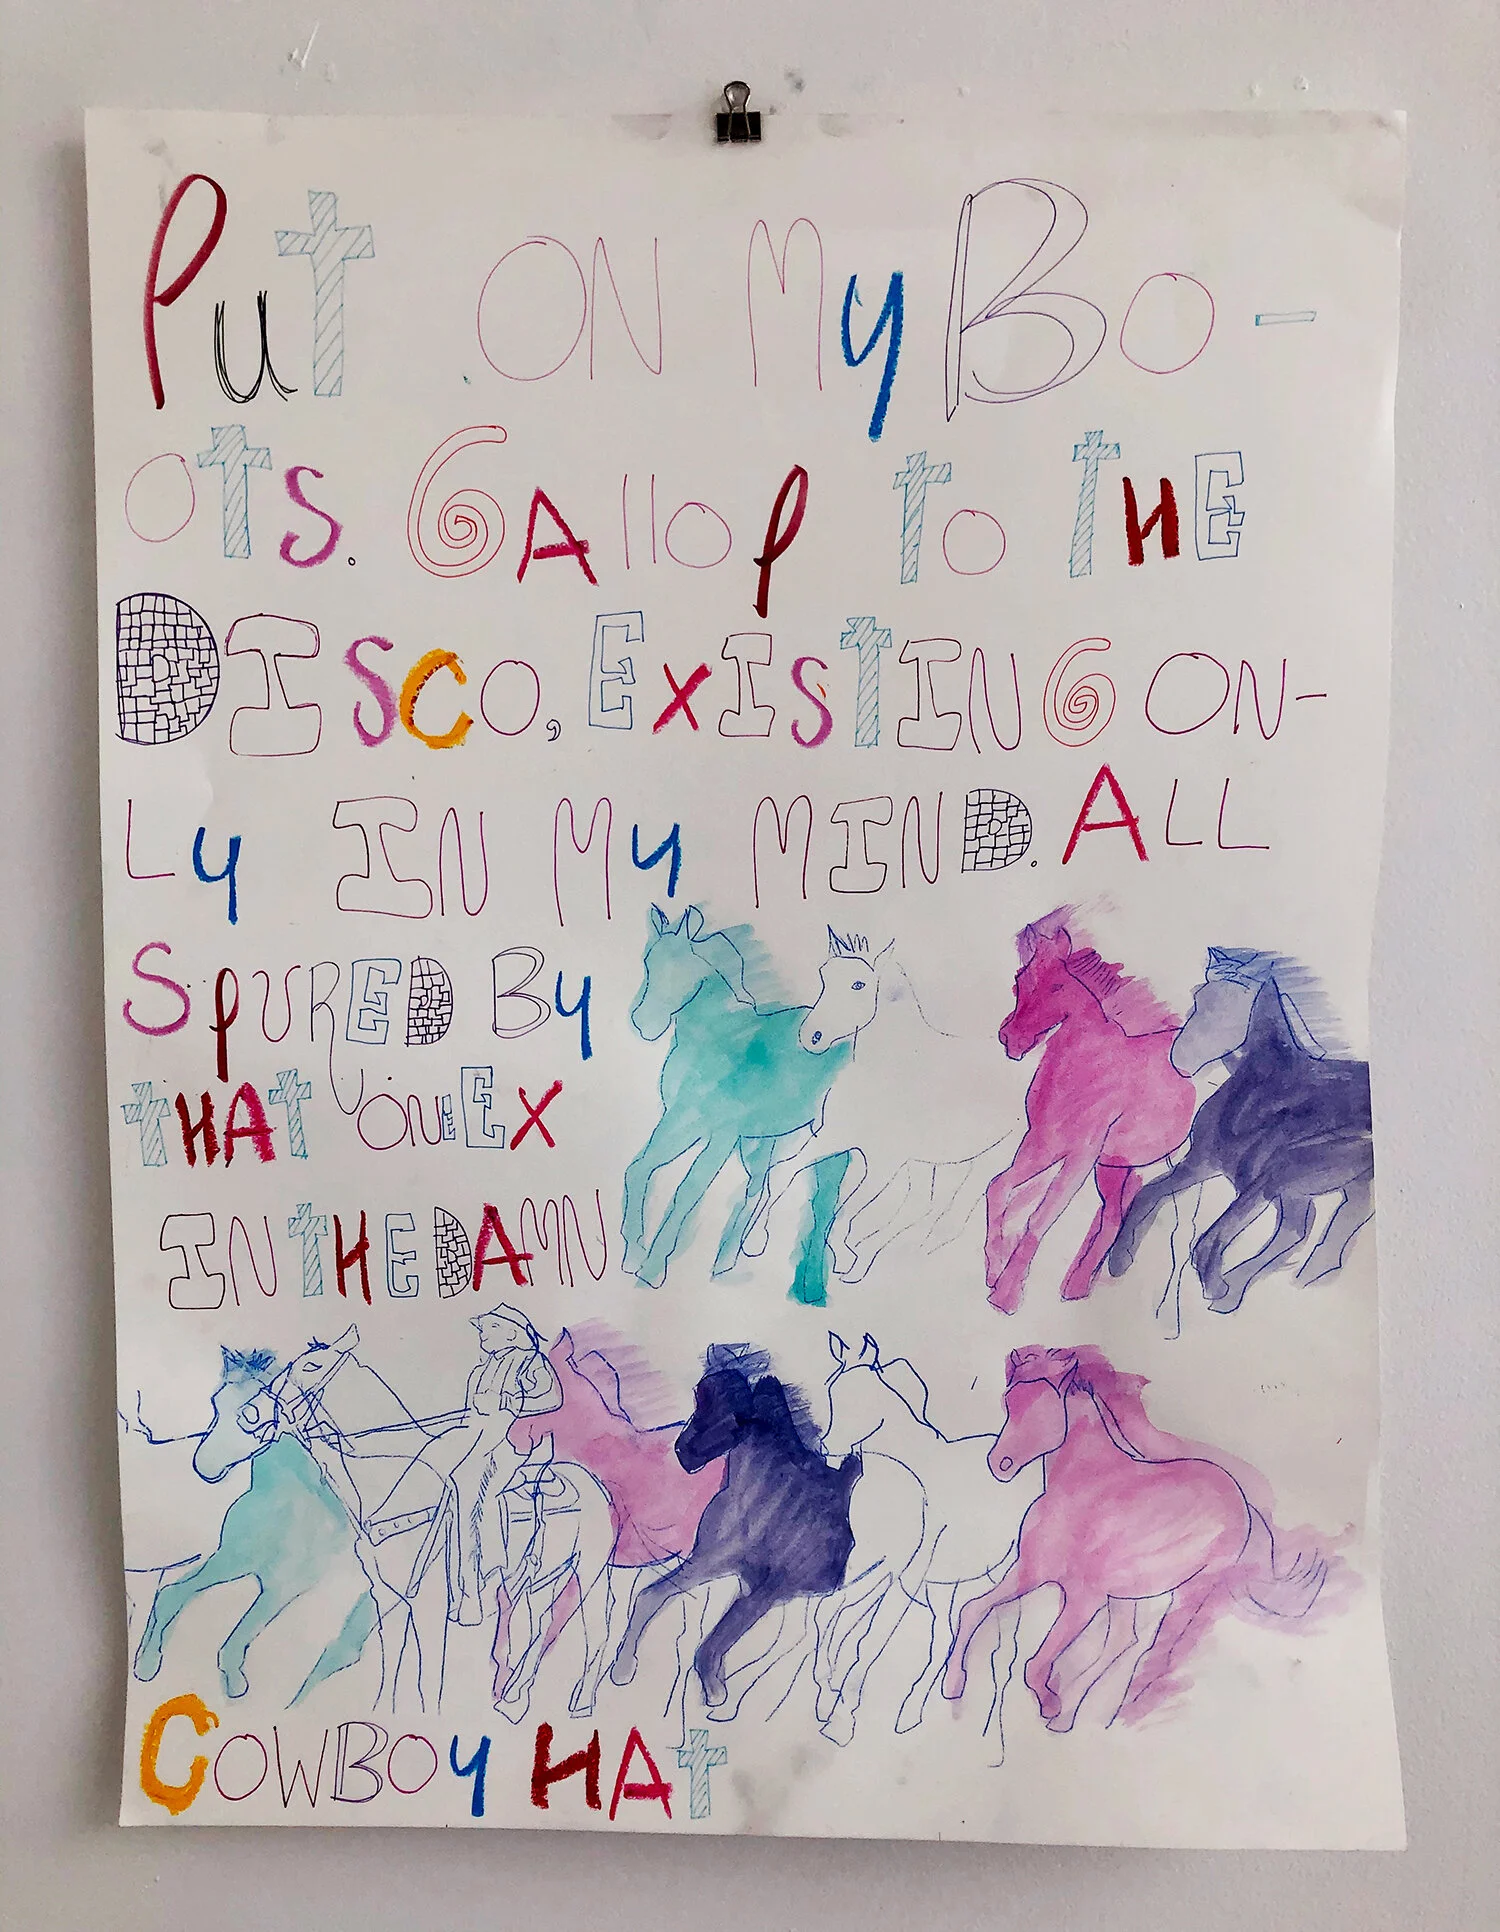 Put ON My BO-
OTS. GAllOp To THE
DISCO, ExISTING ON-
Ly IN My MIND. ALL
SpURED By
THAT ONE Ex
IN THE DAMN
COWBOy HAT